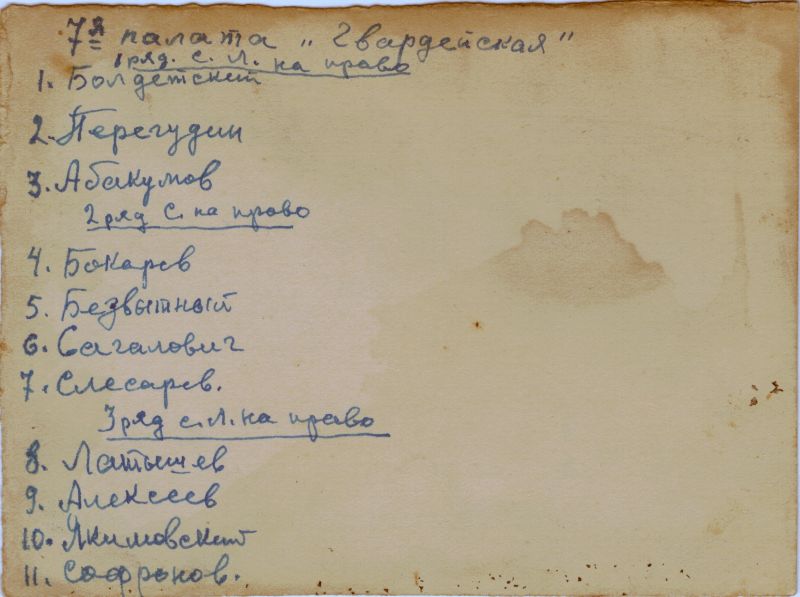 7я палата „Гвардейская"
1 ряд. с. л. на право
1. Болдетский
2. Перегудин
3. Абакумов
2 ряд с. на право
4. Бокарев
5. Безвытный
6. Сагалович
7. Слесарев.
3 ряд с. л. на право
8. Латышев
9. Алексеев
10. Якимовский
11. Софронов.